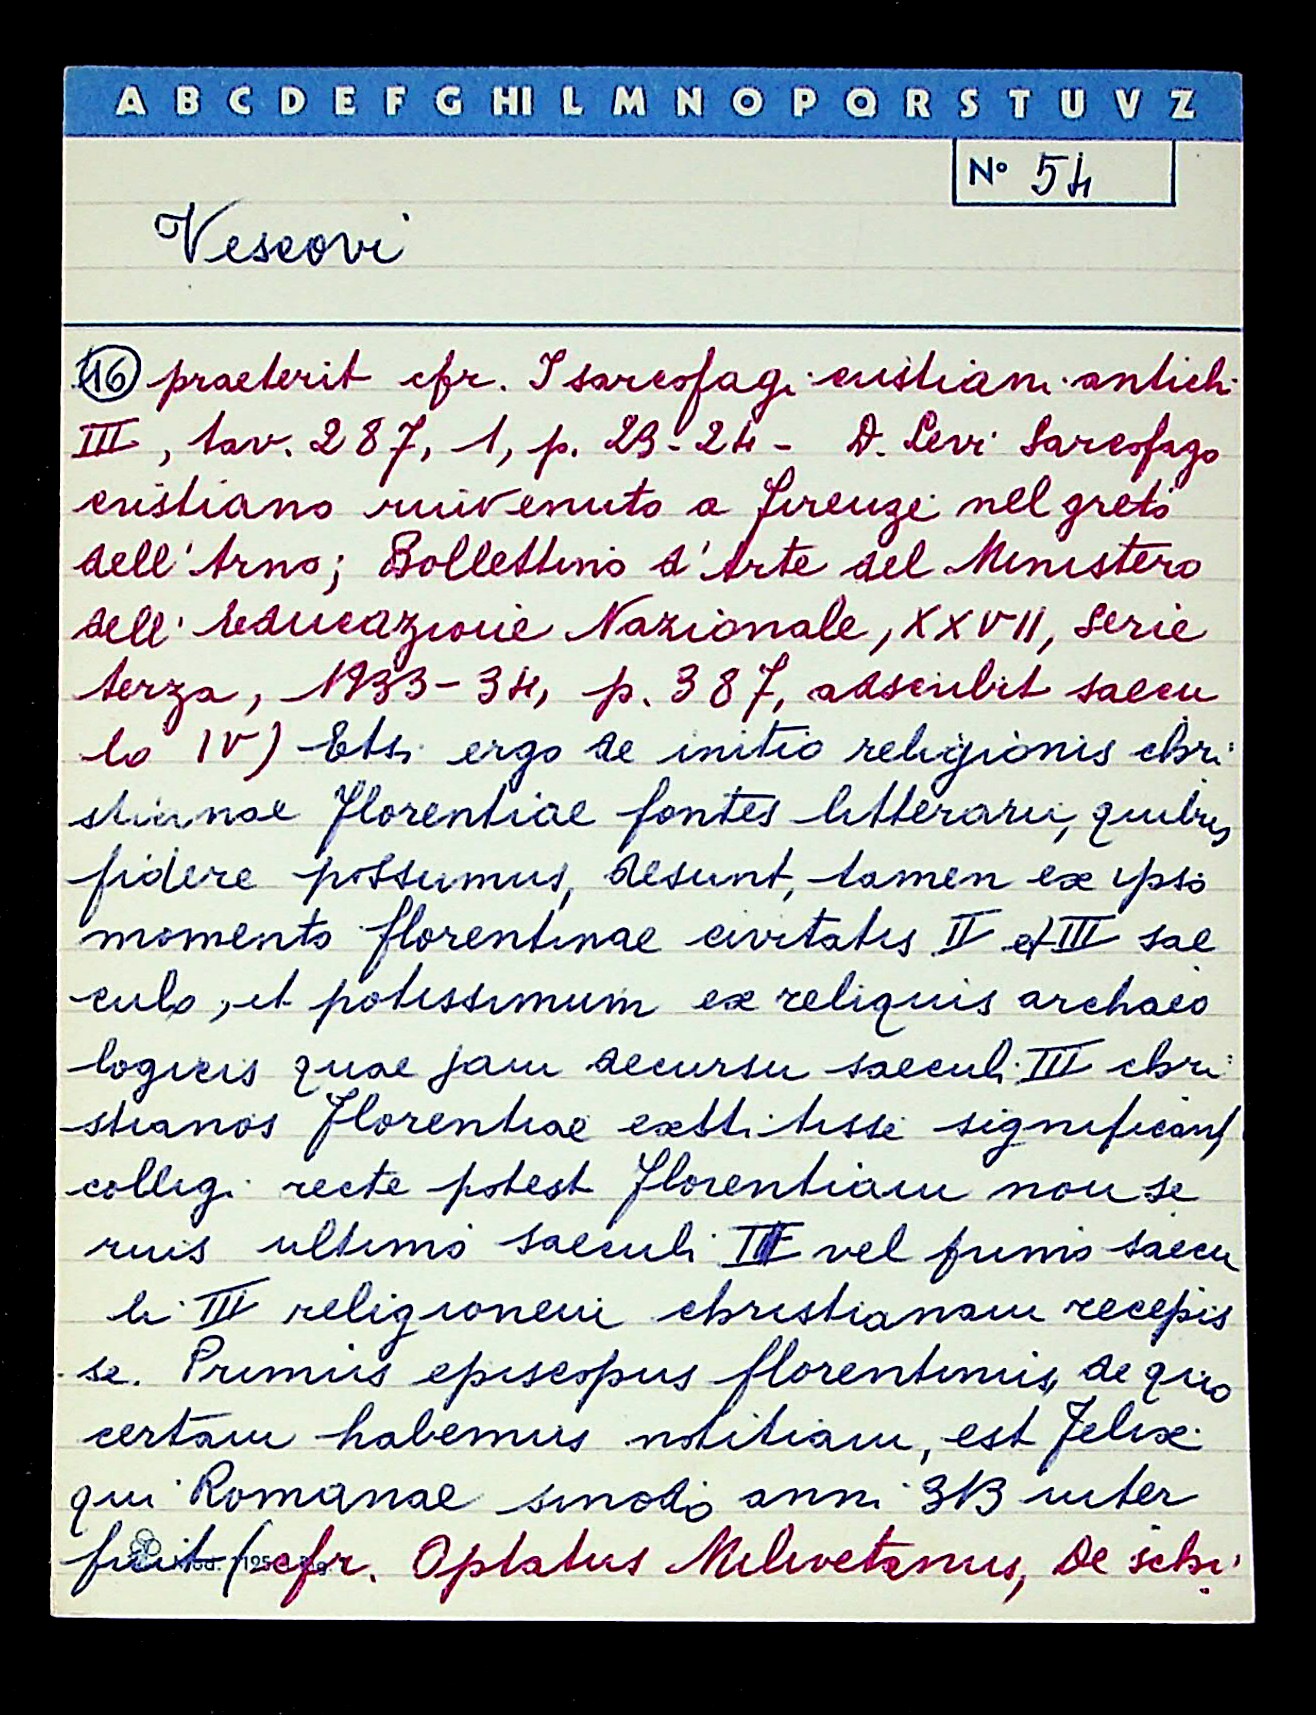 A B C D E F G HI L M N O P Q R S T U V Z
N° 54
Vescovi
16 praeterit cfr. I sarcofagi cristiani antichi
III, tav. 287, 1, p. 23-24 - D. Levi Sarcofago
cristiano rinvenuto a Firenze nel greto
dell'Arno; Bollettino d'Arte del Ministero
dell'Educazione Nazionale, XXVII, Serie
terza, 1933-34, p. 387, adscribit saecu
lo IV) Etsi ergo de initio religionis chri
stianae Florentiae fontes litterarii, quibus
fidere possumus, desunt, tamen ex ipso
momento florentinae civitatis II et III sae
culo, et potissimum ex reliquis archaeo
logicis quae jam decursu saeculi III chri
stianos Florentiae exstitisse significant
colligi recte potest Florentiam non se
rius ultimo saeculi II vel primo saecu
li III religionem christianam recepis
se. Primus episcopus florentinus, de quo
certam habemus notitiam, est Felix
qui Romanae sinodo anni 313 inter
fuit (cfr. Optatus Milivetanus, De schi